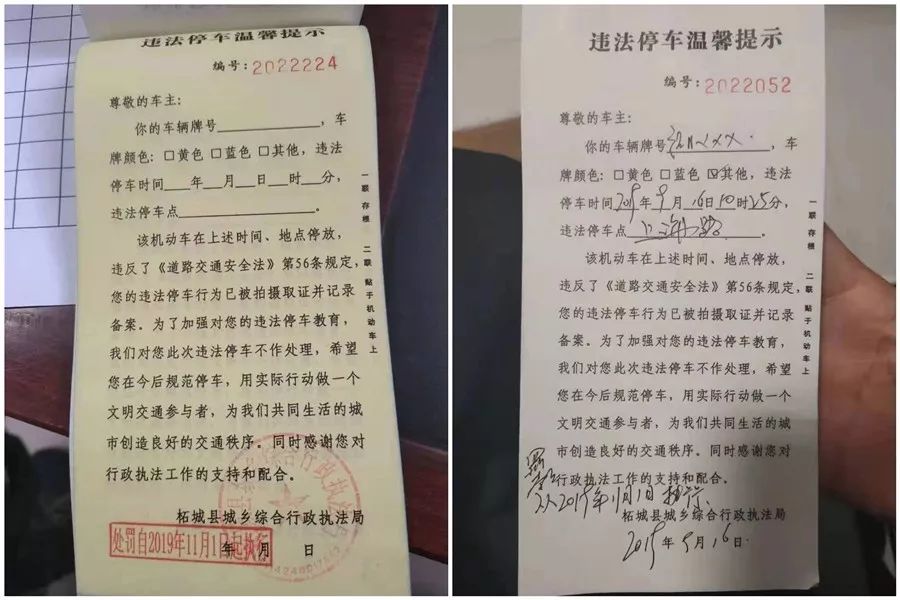 违法停车温馨提示
编号：2022224
尊敬的车主：
你的车辆牌号____________，车
牌颜色：□黄色 □蓝色 □其他，违法
停车时间___年___月___日___时___分，
违法停车点________________。
该机动车在上述时间、地点停放，
违反了《道路交通安全法》第56条规定，
您的违法停车行为已被拍摄取证并记录
备案。为了加强对您的违法停车教育，
我们对您此次违法停车不作处理，希望
您在今后规范停车，用实际行动做一个
文明交通参与者，为我们共同生活的城
市创造良好的交通秩序。同时感谢您对
行政执法工作的支持和配合。
柘城县城乡综合行政执法局
年 月 日
处罚自2019年11月1日起执行
一联 存根 二联 贴于机动车上
违法停车温馨提示
编号：2022052
尊敬的车主：
你的车辆牌号
，车
牌颜色：□黄色 □蓝色 ☑其他，违法
停车时间2019年9月16日10时25分，
违法停车点上海路。
该机动车在上述时间、地点停放，
违反了《道路交通安全法》第56条规定，
您的违法停车行为已被拍摄取证并记录
备案。为了加强对您的违法停车教育，
我们对您此次违法停车不作处理，希望
您在今后规范停车，用实际行动做一个
文明交通参与者，为我们共同生活的城
市创造良好的交通秩序。同时感谢您对
行政执法工作的支持和配合。
从2019年11月1日执行
柘城县城乡综合行政执法局
2019年9月16日
一联 存根 二联 贴于机动车上